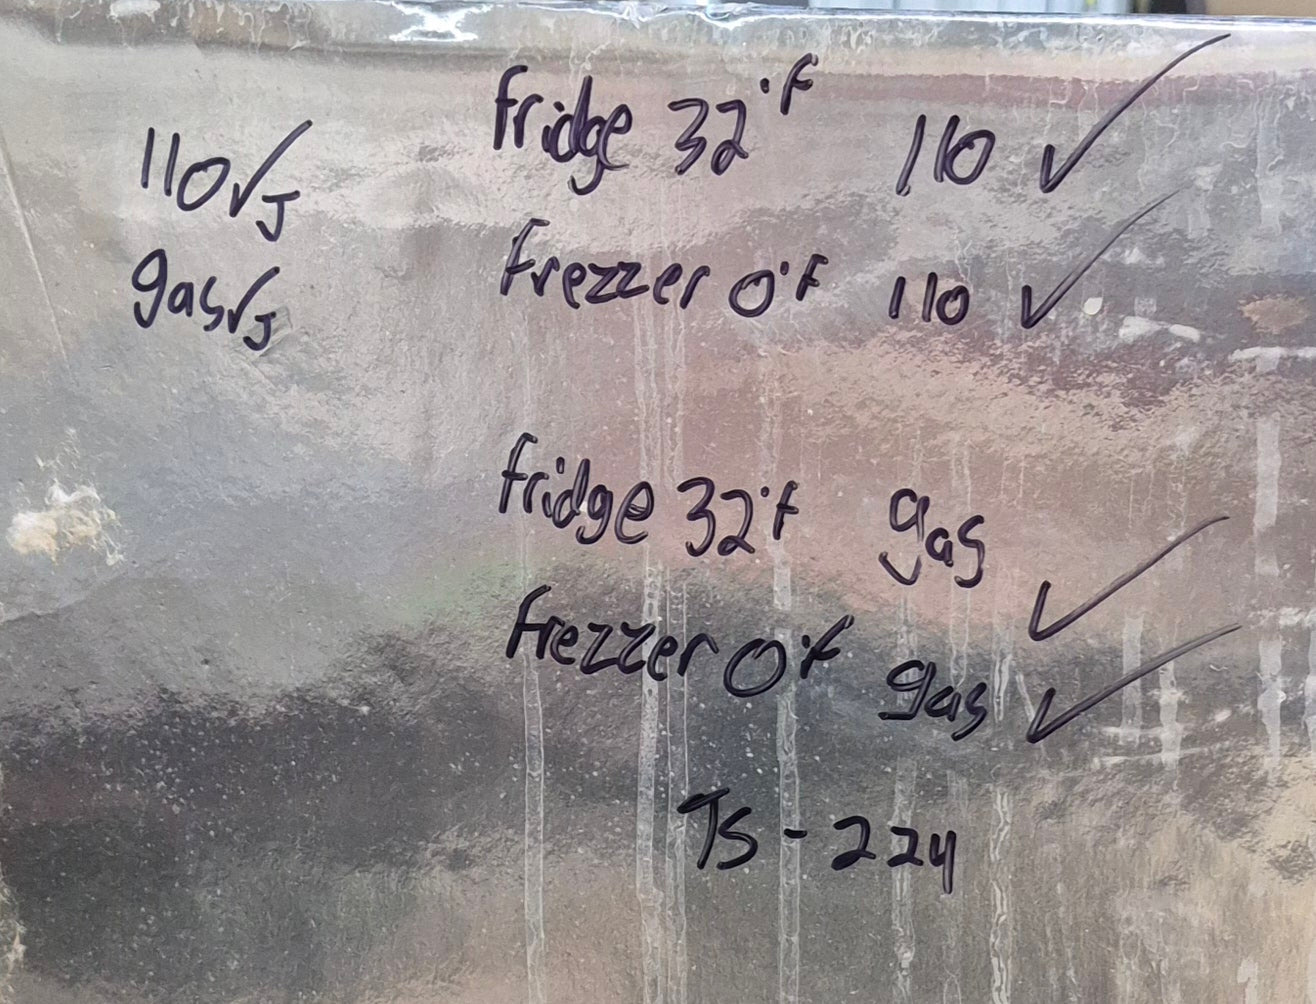 110 √J
gas √J
fridge 32°f 110 ✓
frezzer 0°f 110 ✓
fridge 32°f gas ✓
frezzer 0°f gas ✓
TS-224